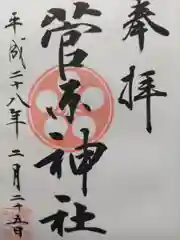 奉拝
菅原神社
平成二十八年
二月二十五日